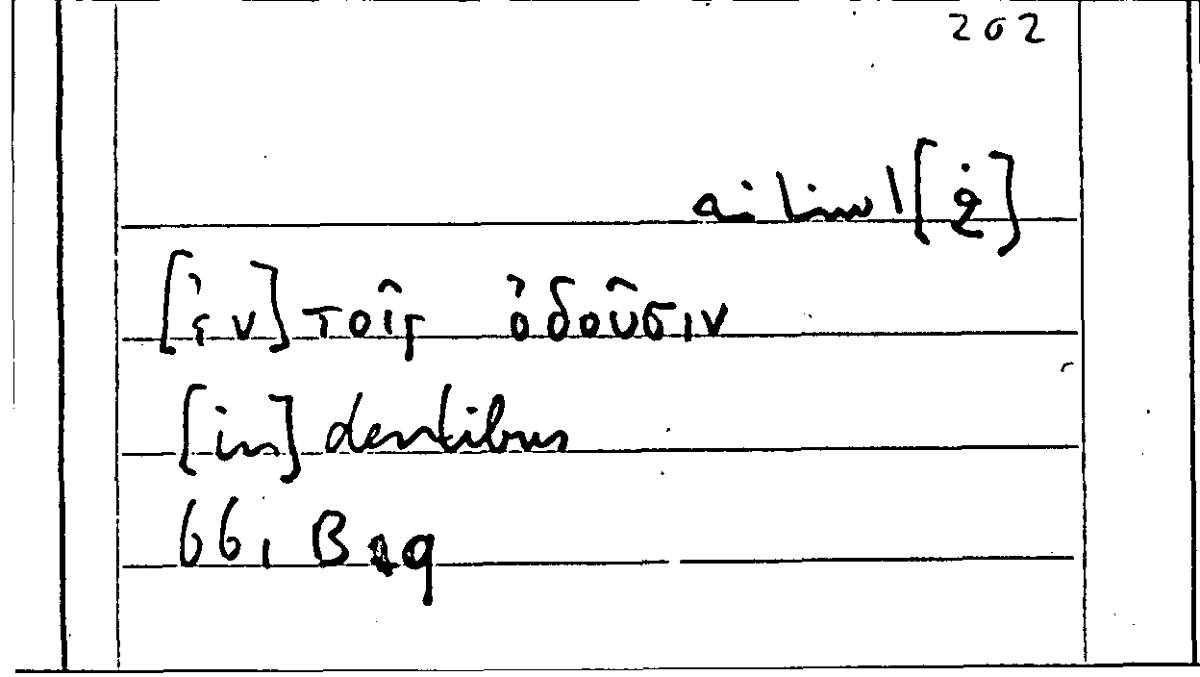 202
[في]
[ἐν] τοῖς ὀδοῦσιν
[in] dentibus
66, B